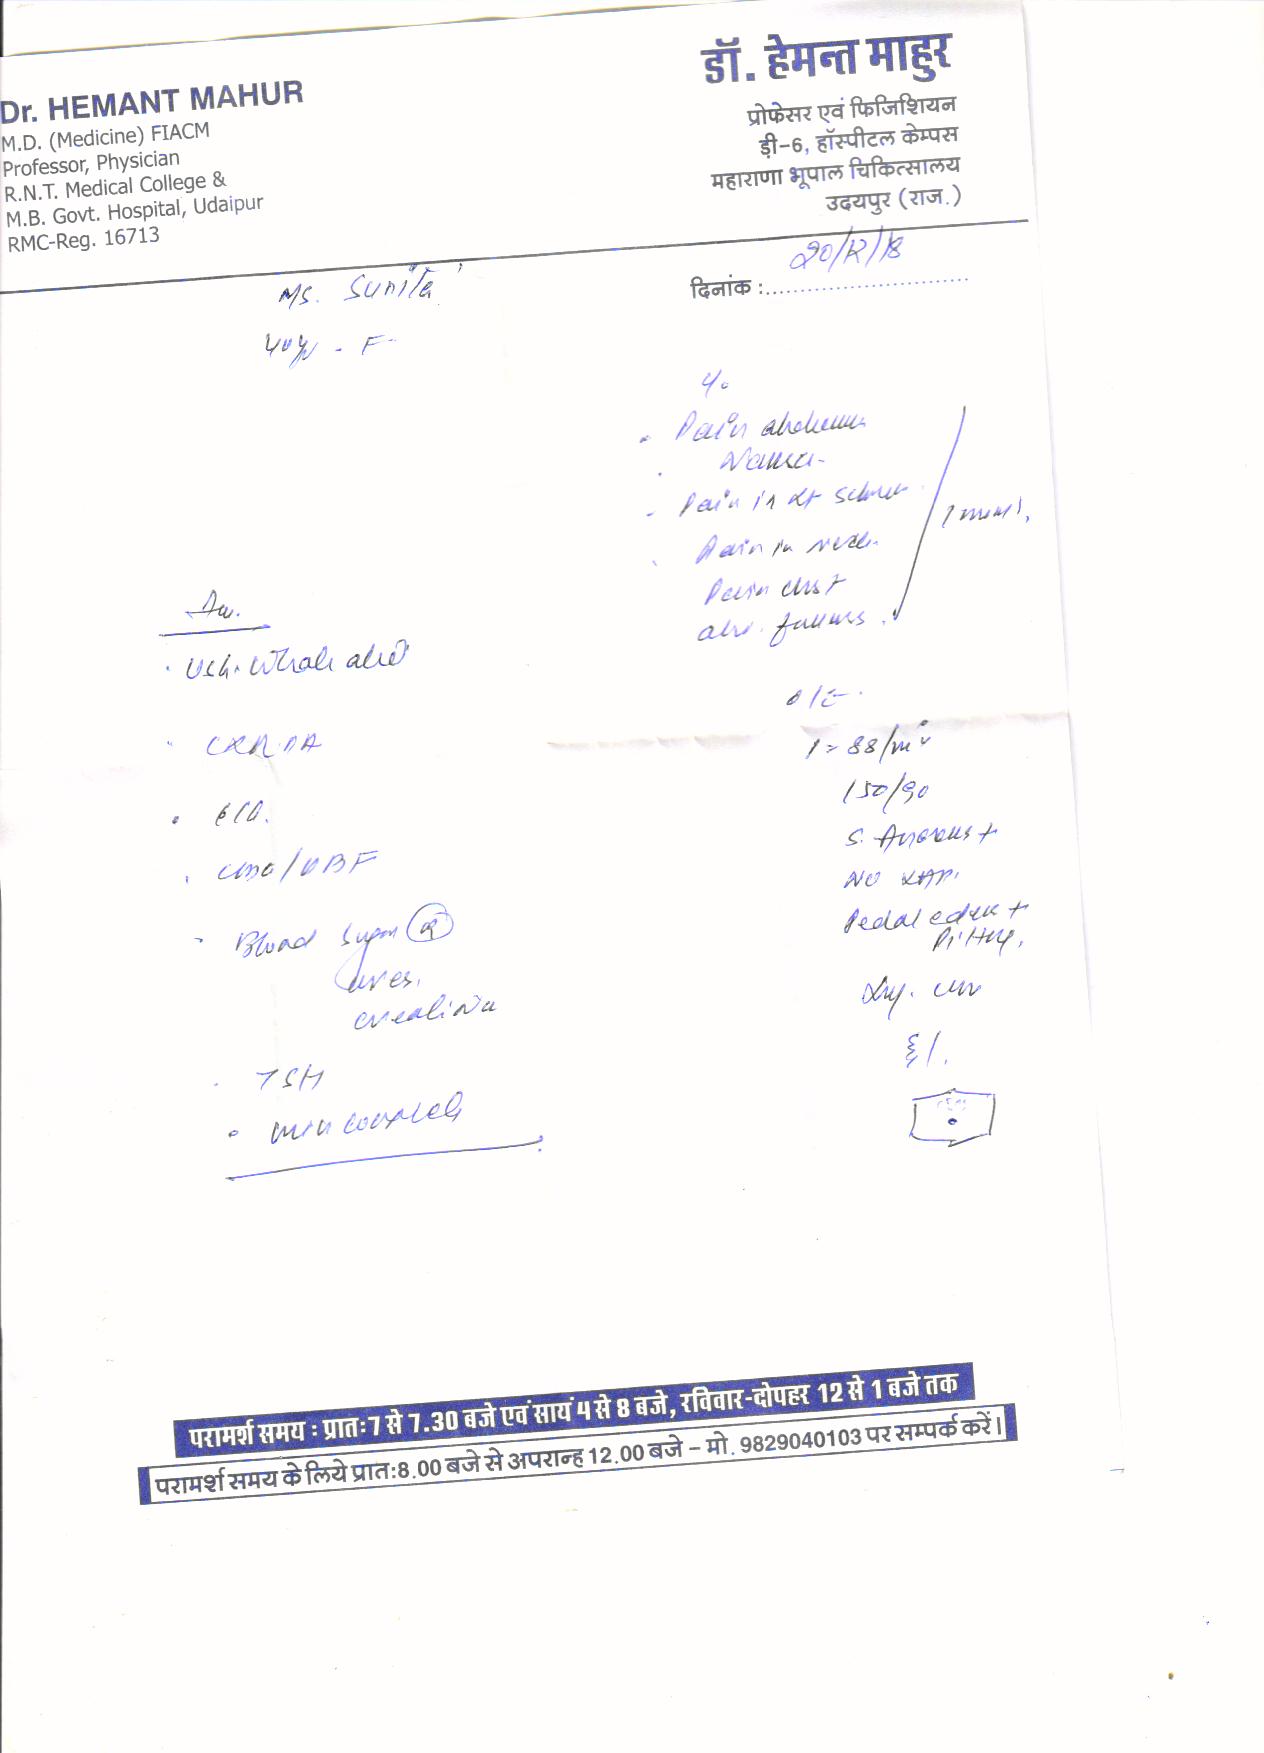 Dr. HEMANT MAHUR
M.D. (Medicine) FIACM
Professor, Physician
R.N.T. Medical College &
M.B. Govt. Hospital, Udaipur
RMC-Reg. 16713
डॉ. हेमन्त माहुर
प्रोफेसर एवं फिजिशियन
डी-6, हॉस्पीटल केम्पस
महाराणा भूपाल चिकित्सालय
उदयपुर (राज.)
दिनांक : 20/12/18
Ms. Sunita
40y - F
Pain abdomen
Nausea
Pain in
Pain in
Pain chest
abd.
O/E
88/m
150/90
S. Anaemia +
No
Pedal edema +
Pitting.
USG. Whole abd
CXR PA
ECG.
CBC/PBF
Blood Sugar R
urea.
creatinine
TSH
परामर्श समय : प्रातः 7 से 7.30 बजे एवं सायं 4 से 8 बजे, रविवार-दोपहर 12 से 1 बजे तक
परामर्श समय के लिये प्रातः8.00 बजे से अपरान्ह 12.00 बजे – मो. 9829040103 पर सम्पर्क करें।